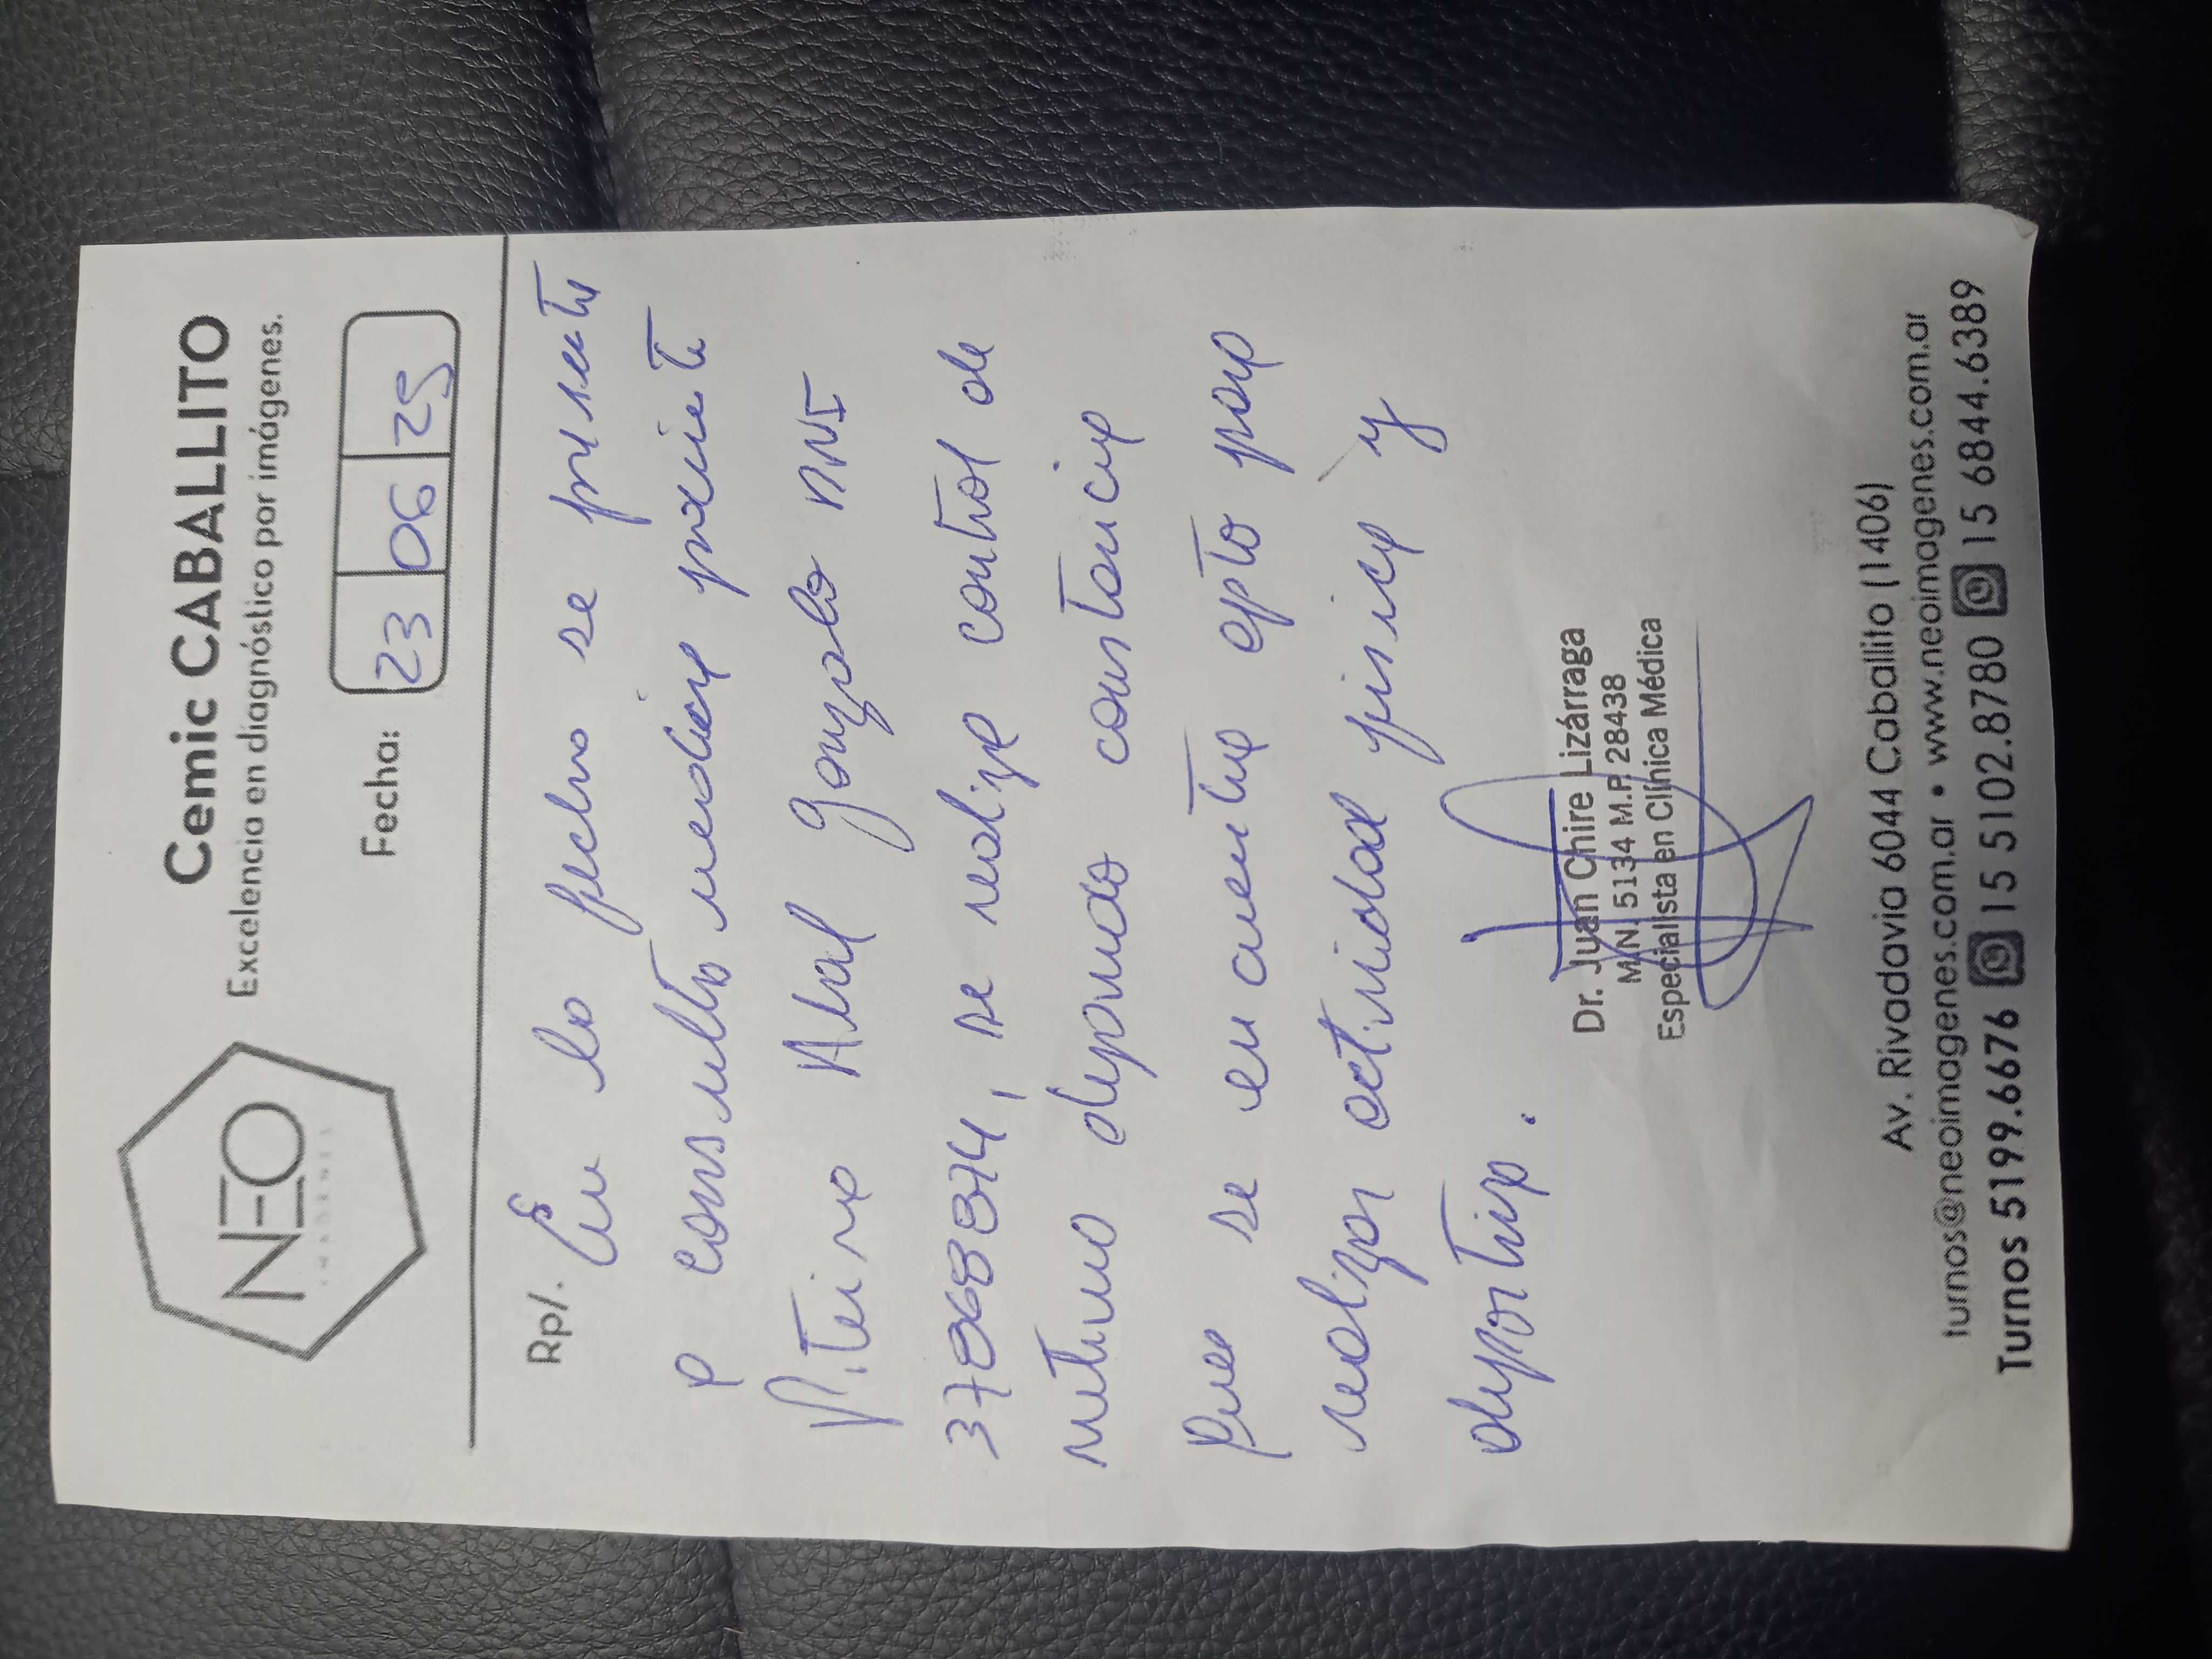 NEO
IMÁGENES
Cemic CABALLITO
Excelencia en diagnóstico por imágenes.
Fecha: 23 06 25
Rp/. En la fecha se presenta
a consulta medica paciente
Aral Gonzalo DNI
37868874, se realiza control de
rutina dejando constancia
que se encuentra apto para
realizar actividad fisica y
deportiva.
Dr. Juan Chire Lizárraga
M.N. 5134 M.P. 28438
Especialista en Clínica Médica
Av. Rivadavia 6044 Caballito (1406)
turnos@neoimagenes.com.ar • www.neoimagenes.com.ar
Turnos 5199.6676 15 5102.8780 15 6844.6389